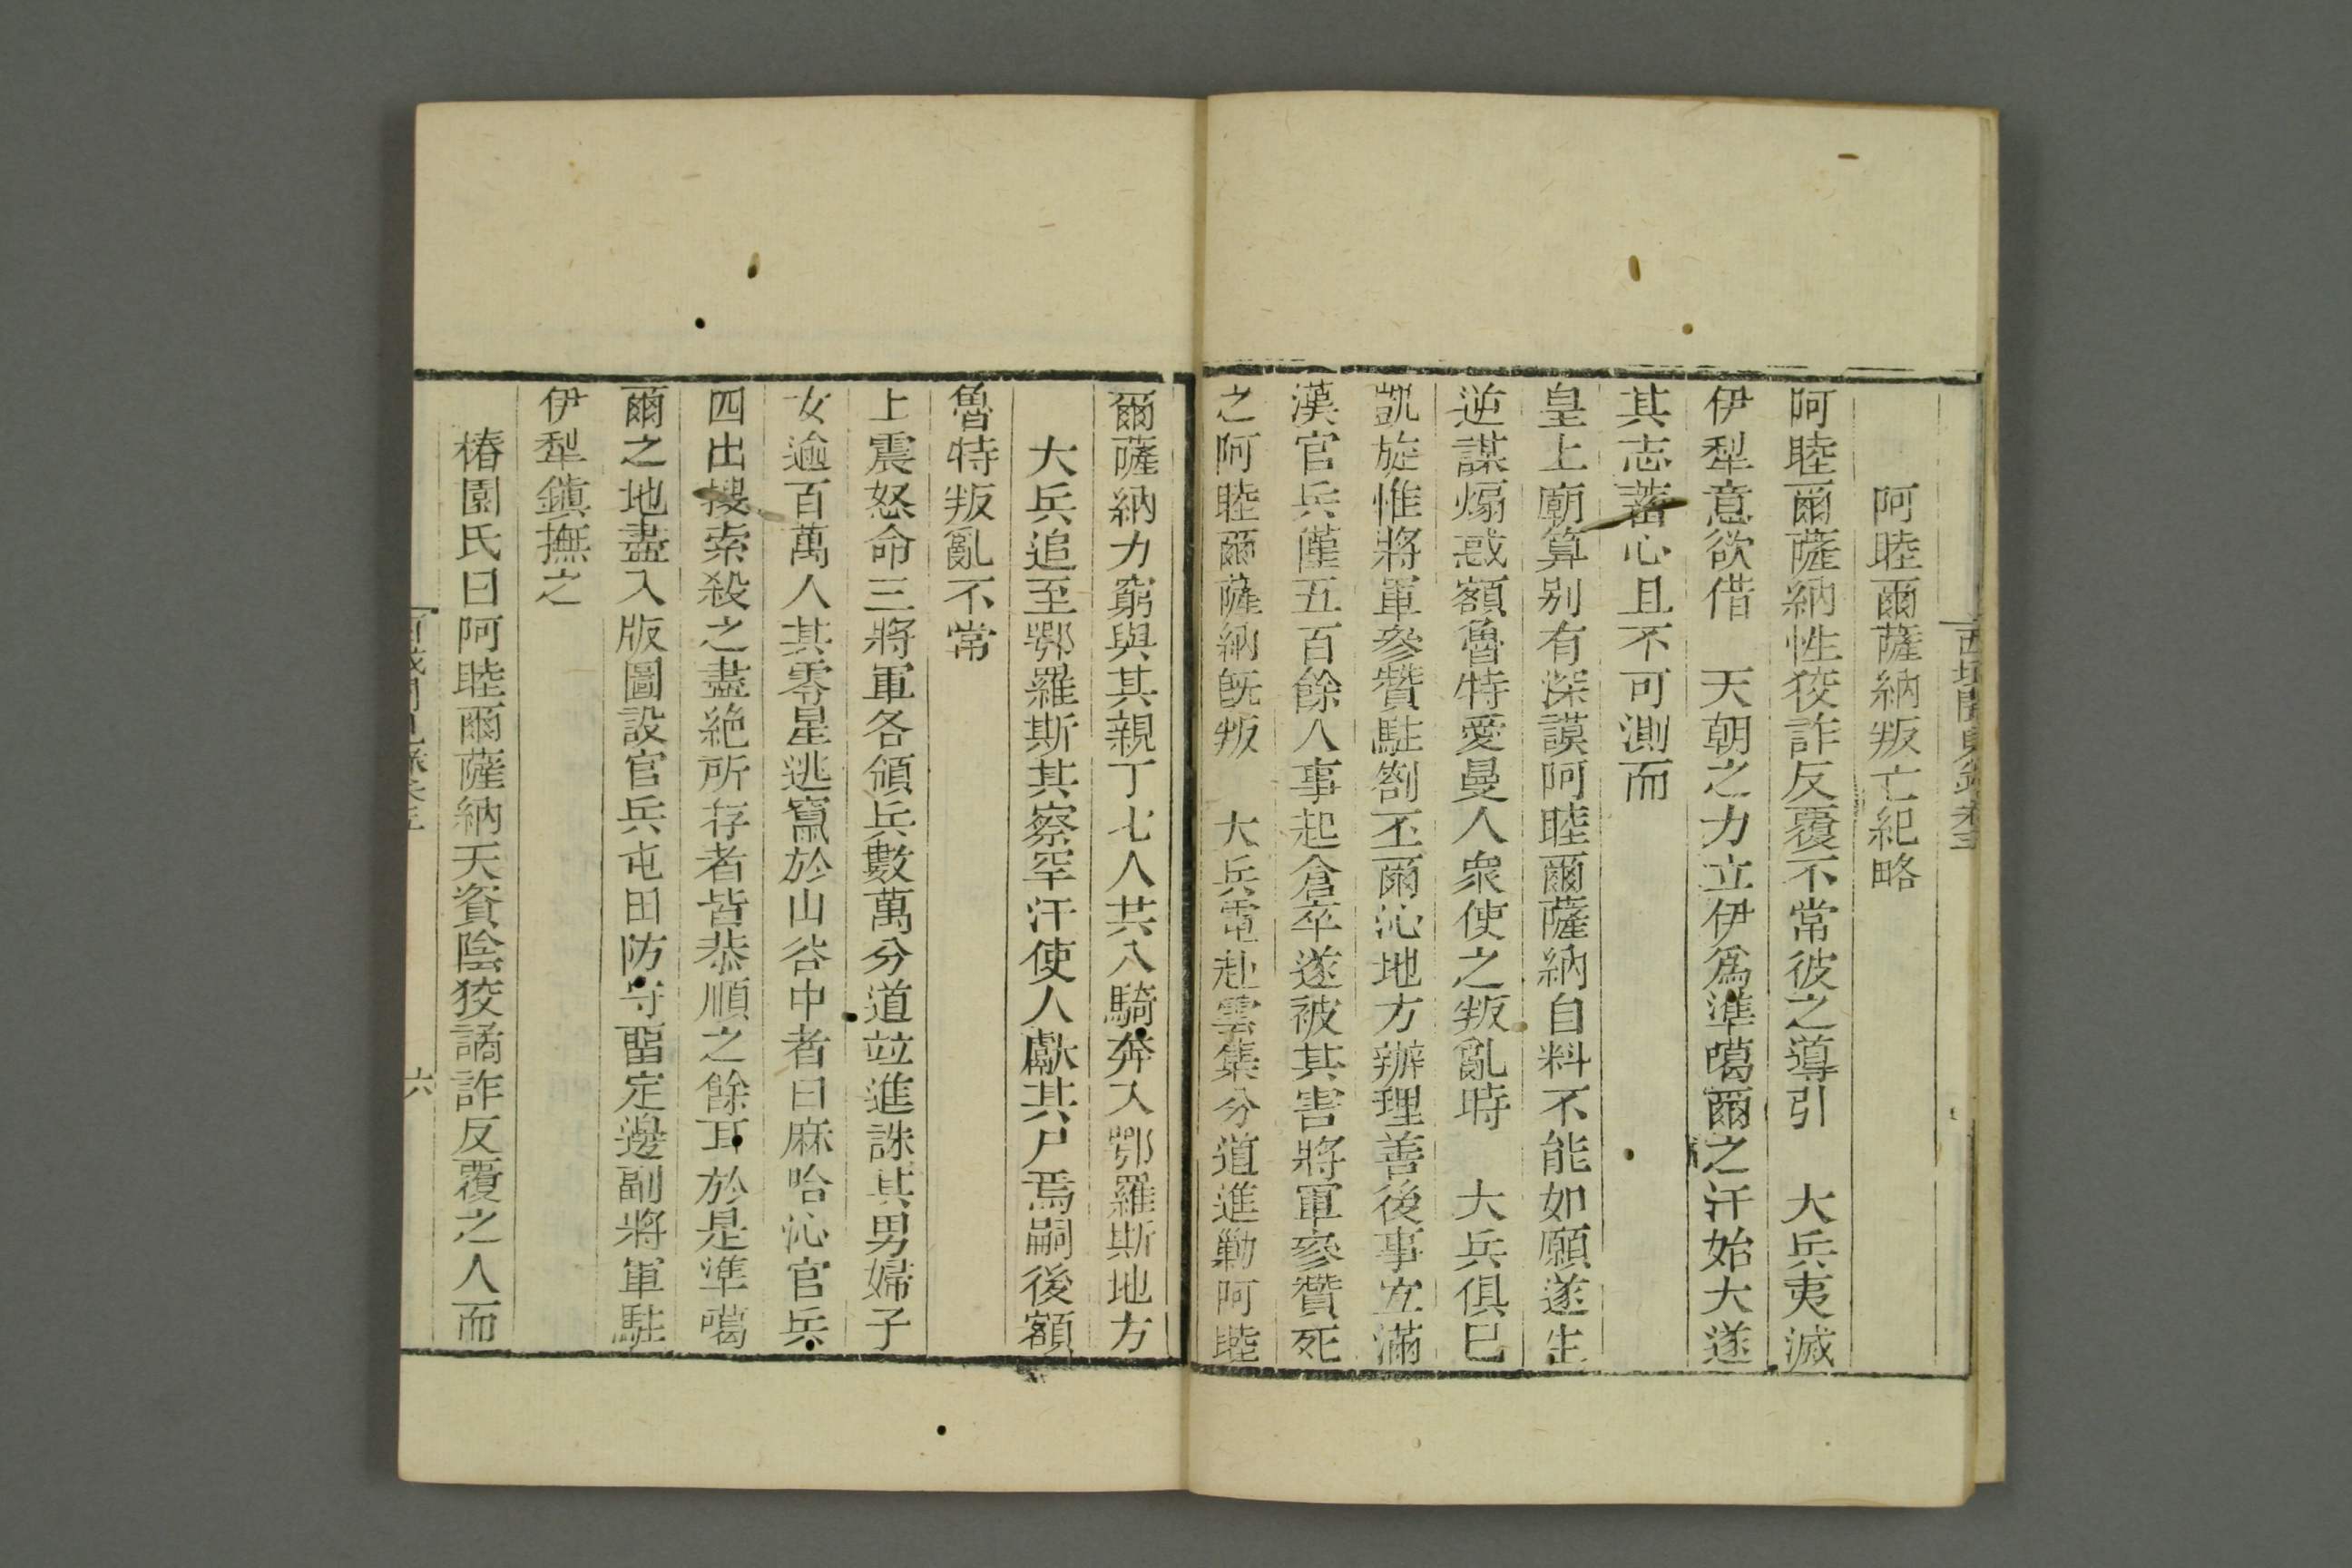 阿睦爾薩納叛亡紀略
阿睦爾薩納性狡詐反覆不常彼之導引　大兵夷滅
伊犁意欲借　天朝之力立伊爲準噶爾之汗始大遂
其志蓄心且不可測而
皇上廟算別有深謨阿睦爾薩納自料不能如願遂生
逆謀煽惑額魯特愛曼人衆使之叛亂時　大兵俱已
凱旋惟將軍參贊駐劄丕爾沁地方辦理善後事宜滿
漢官兵僅五百餘人事起倉卒遂被其害將軍參贊死
之阿睦爾薩納旣叛　大兵電赴雲集分道進勦阿睦
爾薩納力窮與其親丁七人共八騎奔入鄂羅斯地方
大兵追至鄂羅斯其察罕汗使人獻其尸焉嗣後額
魯特叛亂不常
上震怒命三將軍各領兵數萬分道竝進誅其男婦子
女逾百萬人其零星逃竄於山谷中者曰麻哈沁官兵
四出搜索殺之盡絶所存者皆恭順之餘耳於是準噶
爾之地盡入版圖設官兵屯田防守畱定邊副將軍駐
伊犁鎭撫之
椿園氏曰阿睦爾薩納天資陰狡譎詐反覆之人而
六